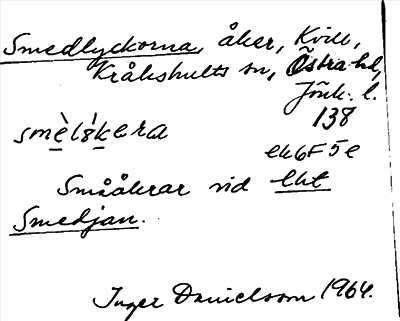 Smedlyckorna, åker, Kvill,
Kråkshults sn, Östra hd,
Jönk. l.
138
smèlýkera
ek6F5e
Småäkrar vid lht
Smedjan.
Inger Danielsson 1964.